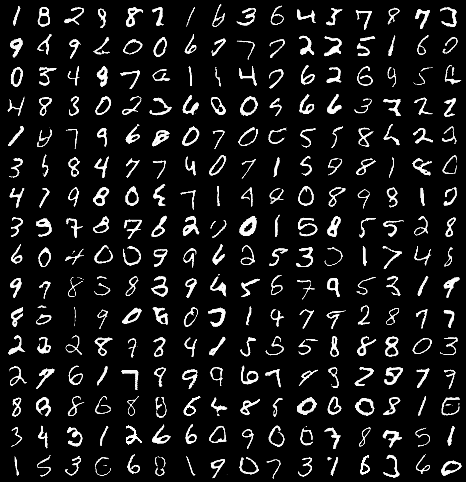 1 8 2 9 8 2 1 6 3 6 4 3 7 8 7 3
9 4 9 2 0 0 6 7 7 7 2 2 5 1 6 0
0 5 4 9 7 1 1 4 7 6 2 6 9 5 4
4 8 3 0 2 3 6 0 0 9 6 6 3 7 2 2
1 8 7 9 6 8 0 7 0 0 5 5 8 2 2
3 5 8 4 7 7 4 0 7 1 5 9 8 1 8 0
4 7 9 8 0 7 1 4 4 0 8 9 8 1 0
3 9 7 8 7 8 2 0 0 1 5 8 5 5 2 8
6 0 4 0 0 9 9 6 2 5 3 0 1 7 4 5
9 7 8 3 8 3 9 4 5 6 7 9 5 3 1 9
8 1 9 0 8 0 3 1 4 7 9 2 8 7 7
2 2 2 8 7 3 4 1 5 5 5 8 8 8 0 3
2 9 6 1 7 8 9 9 6 7 9 8 2 5 7 9
8 8 8 6 8 8 6 4 8 5 0 0 0 8 1 0
3 4 3 1 2 6 6 0 9 0 0 7 8 7 5 1
1 5 3 0 6 8 1 9 0 7 3 7 8 3 6 0